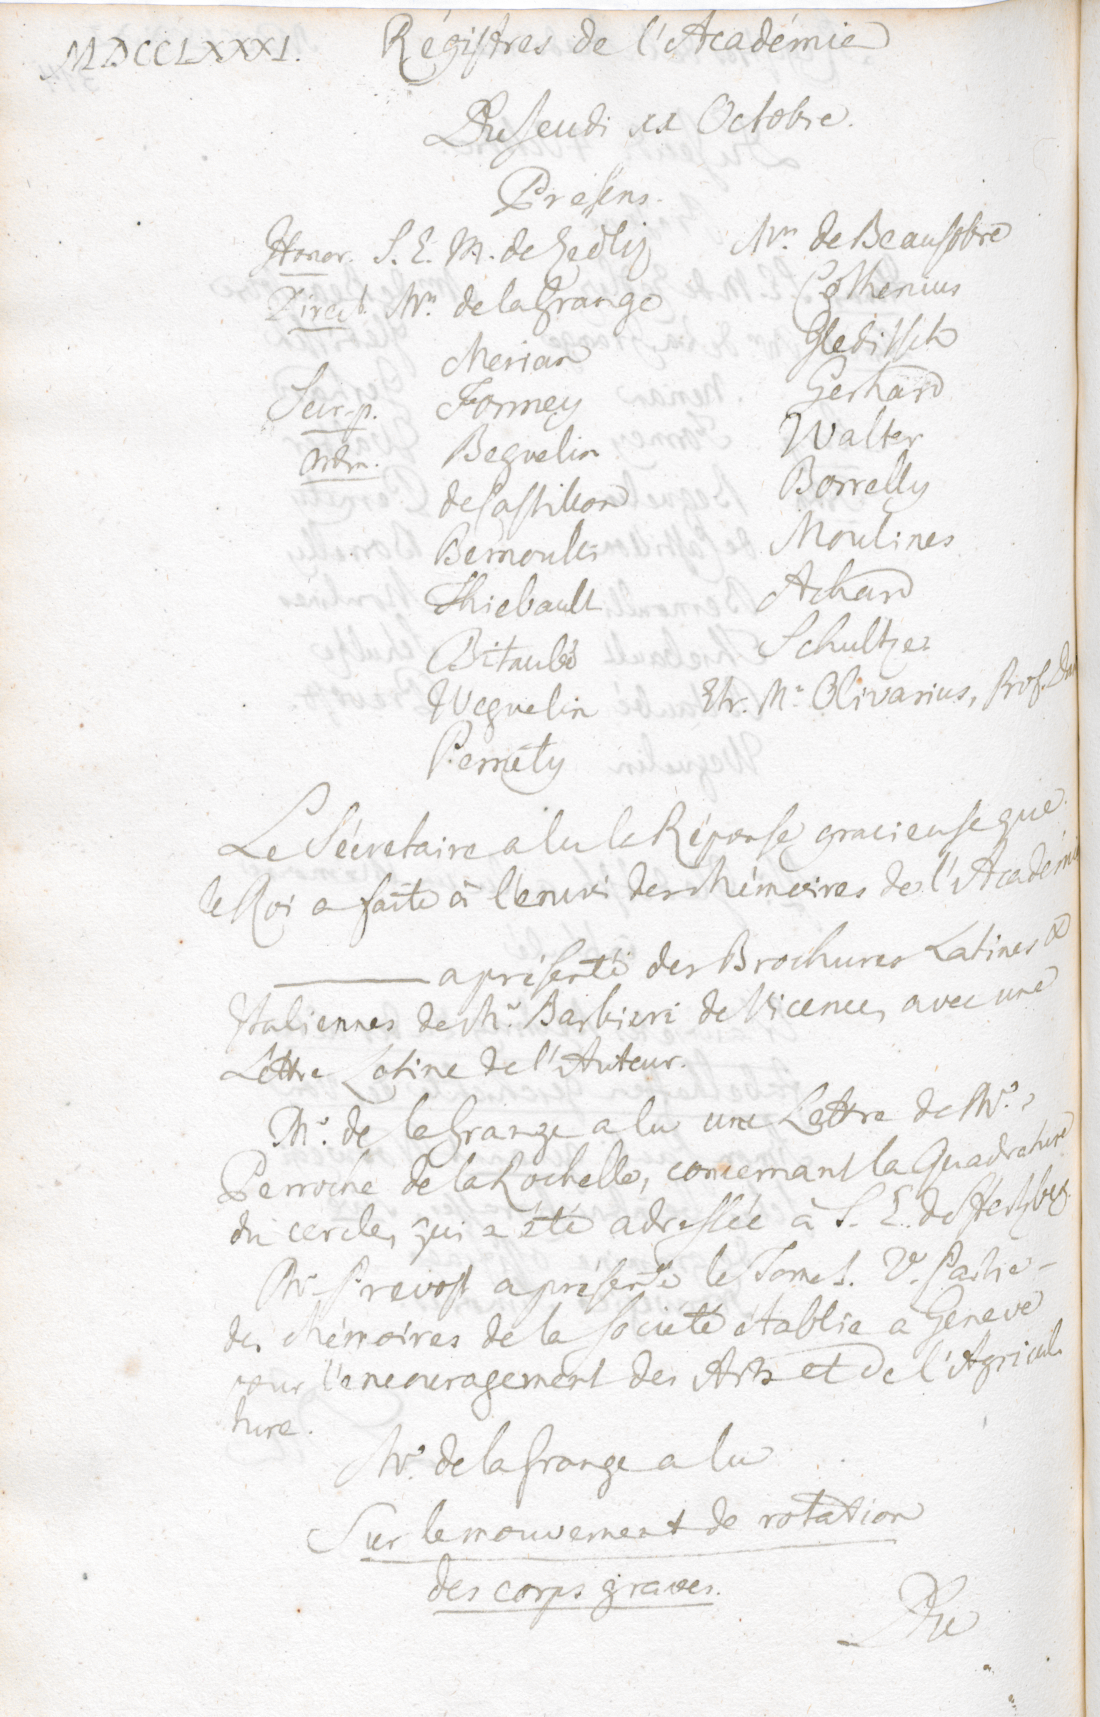 MDCCLXXXI. Régistres de l'Académie
Du Jeudi 11 Octobre.
Presens.
Honor. S. E. M. de Zedlitz
Direct. Mrs. de la Grange
Merian
Secr. p. Formey
Ordin. Beguelin
de Castillon
Bernoulli
Thiebault
Bitaubé
Weguelin
Pernety
Mrs. de Beausobre
Cothenius
Gleditsch
Gerhard
Walter
Borrelly
Moulines
Achard
Schultze
Etr. Mr. Olivarius, Prof.
Le Sécretaire a lu la Réponse gracieuse que
le Roi a faite à l'envoi des Mémoires de l'Académie
——— a présenté des Brochures Latines &
Italiennes de Mr. Barbieri de Vicence, avec une
Lettre Latine de l'Auteur.
Mr. de la Grange a lu une Lettre de Mr.
Perroche de la Rochelle, concernant la Quadrature
du cercle, qui a été adressée à S. E. de Hertzberg
Mr. Prevost a présenté le Tome I. 2e. Partie
des Mémoires de la Societé établie a Geneve
pour l'encouragement des Arts et de l'Agricul
ture.
Mr. de la Grange a lu
Sur le mouvement de rotation
des corps graves.
Du